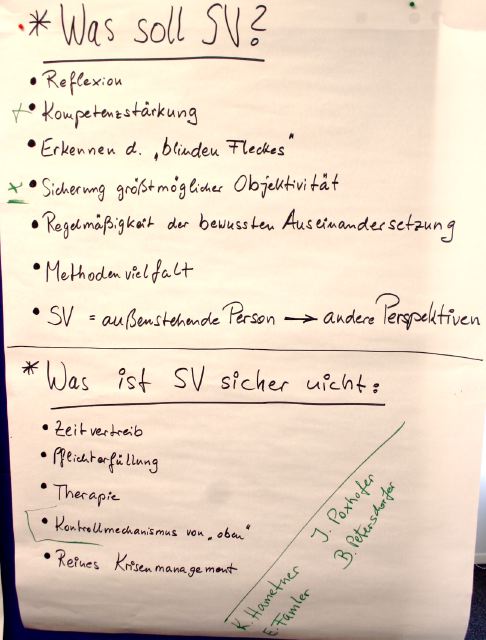 * Was soll SV?
• Reflexion
• Kompetenzstärkung
• Erkennen d. „blinden Fleckes"
• Sicherung größtmöglicher Objektivität
• Regelmäßigkeit der bewussten Auseinandersetzung
• Methodenvielfalt
• SV = außenstehende Person → andere Perspektiven
* Was ist SV sicher nicht:
• Zeitvertreib
• Pflichterfüllung
• Therapie
• Kontrollmechanismus von „oben"
• Reines Krisenmanagement
J. Poxhofer
B. Petersdorfer
K. Hametner
E. Famler